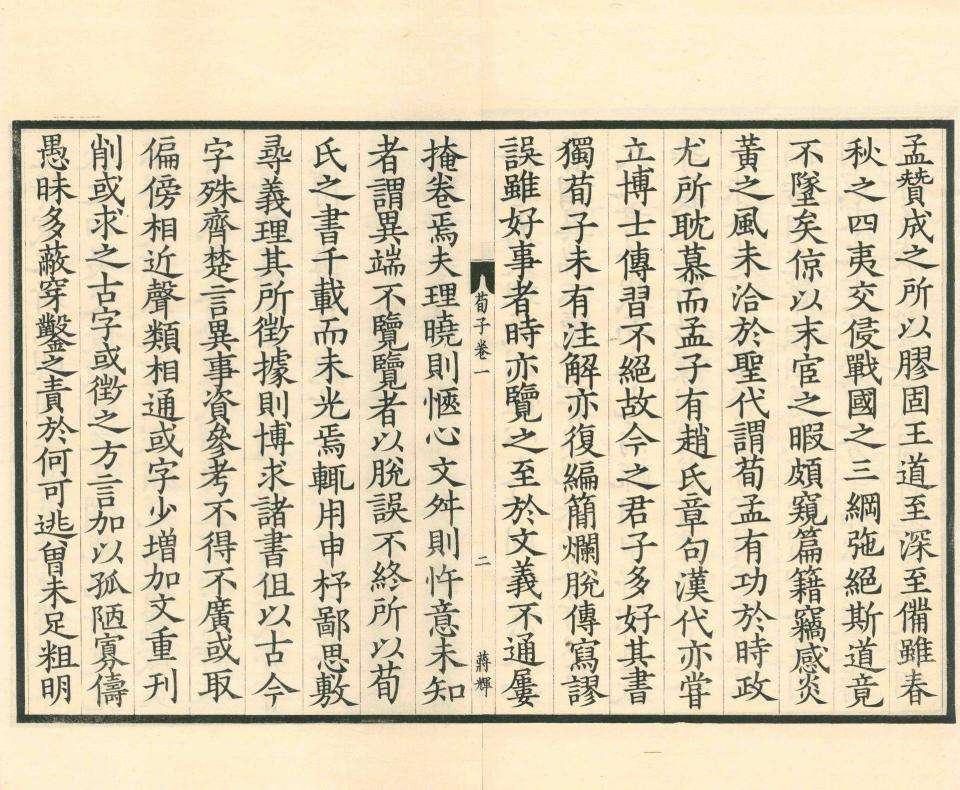 孟贊成之所以膠固王道至深至備雖春
秋之四夷交侵戰國之三綱弛絕斯道竟
不墜矣倞以末宦之暇頗窺篇籍竊感炎
黃之風未洽於聖代謂荀孟有功於時政
尤所耽慕而孟子有趙氏章句漢代亦甞
立博士傳習不絕故今之君子多好其書
獨荀子未有注解亦復編簡爛脫傳寫謬
誤雖好事者時亦覽之至於文義不通屢
荀子卷一
二
蔣輝
掩卷焉夫理曉則愜心文舛則忤意未知
者謂異端不覽覽者以脫誤不終所以荀
氏之書千載而未光焉輒用申杼鄙思敷
尋義理其所徵據則博求諸書但以古今
字殊齊楚言異事資參考不得不廣或取
偏傍相近聲類相通或字少增加文重刊
削或求之古字或徵之方言加以孤陋寡儔
愚昧多蔽穿鑿之責於何可逃曾未足粗明